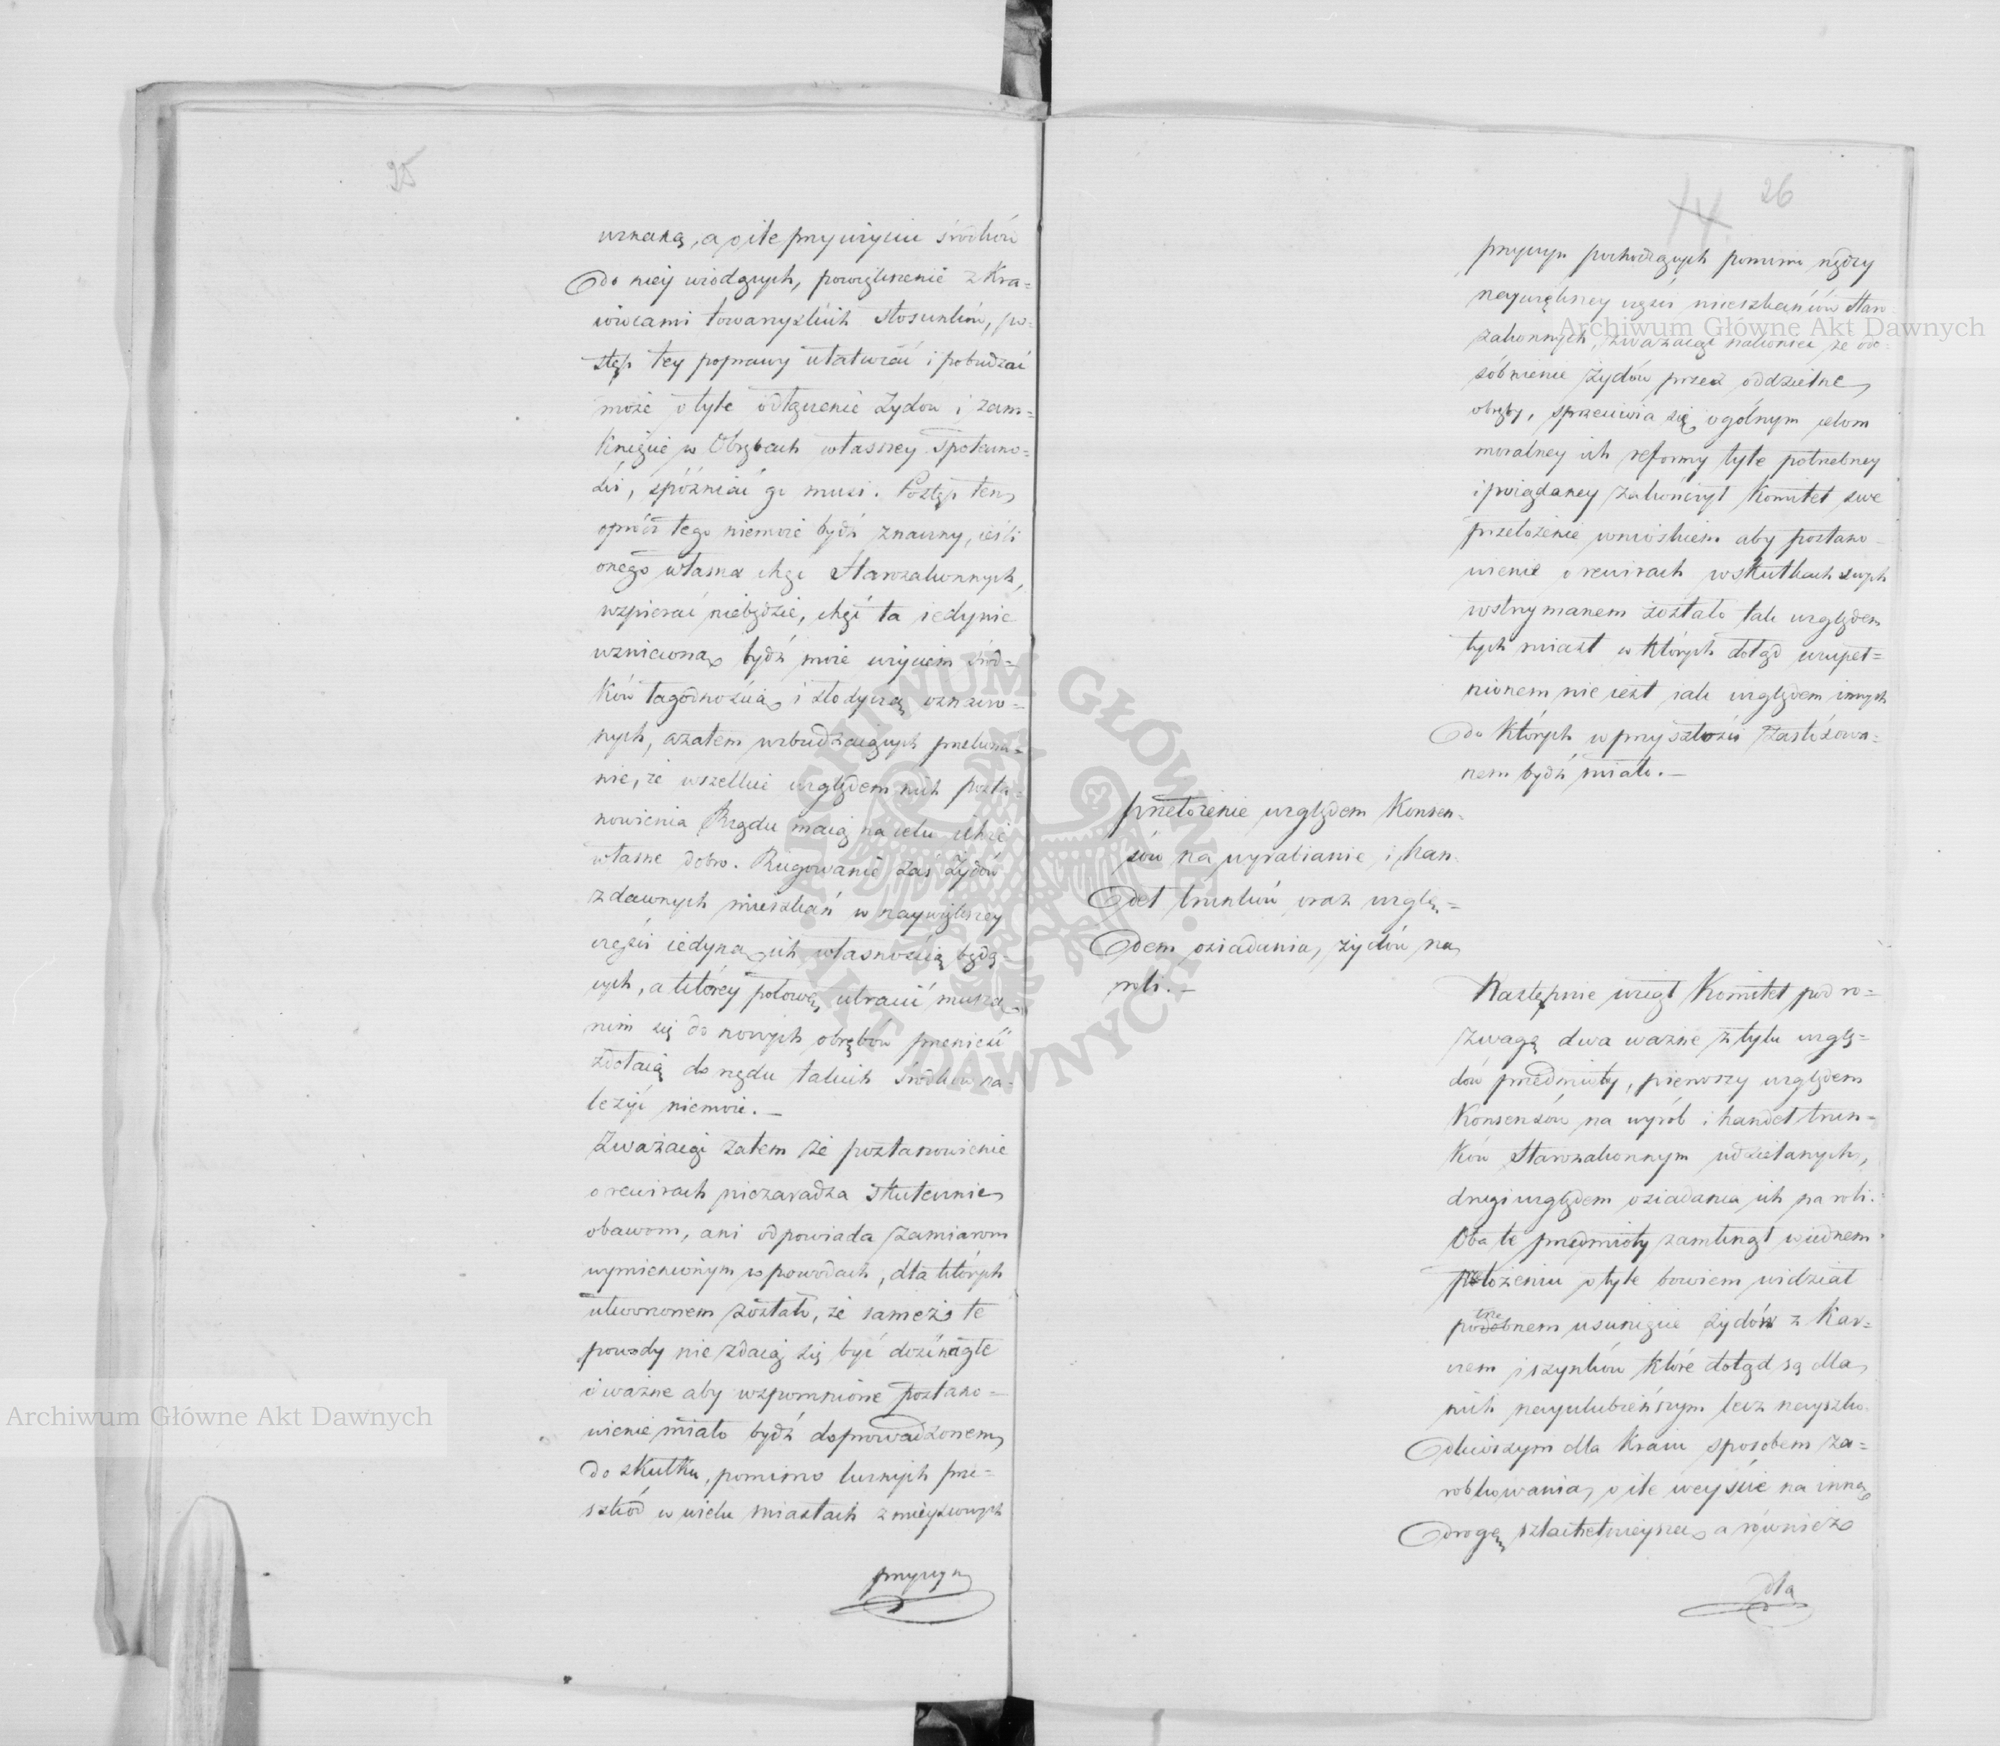 25
uznaną, a o ile przy użyciu środków
do niey wiodących, powiększenie z Kra=
iowcami towarzyskich stosunków, po=
stęp tey poprawy ułatwiać i pobudzać
może o tyle odłączenie Żydów i zam=
knięcie w Obrębach własney społeczno=
ści, spóźniać go musi. Postęp ten
oprócz tego niemoże bydź znaczny, ieśli
onego własna chęć Starozakonnych,
wspierać niebędzie, chęć ta iedynie
wzniecona bydź może użyciem środ=
ków łagodnością i słodyczą oznaczo=
nych, azatem wzbudzaiących przekona=
nie, że wszelkie względem nich posta=
nowienia Rządu maią na celu ichże
własne dobro. Rugowanie zaś Żydów
z dawnych mieszkań w naywiększey
części iedyną ich własnością będą=
cych, a którey połowę utracić muszą
nim się do nowych obrębów przenieść
zdołaią do rzędu takich środków na=
leżyć niemoże. —
Zważaiąc zatem że postanowienie
o rewirach niezaradza skutecznie
obawom, ani odpowiada zamiarom
wymienionym w powodach, dla których
utworzonem zostało, że sameż te
powody nie zdaią się być dosć nagłe
i ważne aby wspomnione postano=
wienie miało bydź doprowadzonem
do skutku, pomimo licznych prze=
szkód w wielu miastach z mieyscowych
przyczyn
14 26
przyczyn pochodzących pomimo nędzy
naywiększey części mieszkańców Staro
zakonnych, zważaiąc nakoniec że odo=
sóbnienie Żydów przez oddzielne
obręby, sprzeciwia się ogólnym celom
moralney ich reformy tyle potrzebney
i pożądaney zakończył Komitet swe
przełożenie wnioskiem aby postano=
wienie o rewirach w skutkach swych
wstrzymanem zostało tak względem
tych miast w których dotąd uzupeł=
nionem nie iest iak względem innych
do których w przyszłości zastósowa=
nem bydź miało. —
Przełożenie względem Konsen=
sów na wyrabianie i han
del trunków oraz wzglę=
dem osiadania żydów na
roli. —
Następnie wziął Komitet pod ro=
zwagę dwa ważne z tylu wzglę=
dów przedmioty, pierwszy względem
Konsensów na wyrób i handel trun=
ków Starozakonnym udzielanych,
drugi względem osiadania ich na roli.
Oba te przedmioty zamknął w iednem
przełożeniu o tyle bowiem widział
potrzebnem usunięcie Żydów z Kar=
czem i szynków które dotąd są dla
nich nayulubieńszym lecz nayszko=
dliwszym dla Kraiu sposobem za=
robkowania, o ile weyście na inną
drogę szlachetnieyszą a również
dla
Archiwum Główne Akt Dawnych
Archiwum Główne Akt Dawnych
ARCHIWUM GŁÓWNE AKT DAWNYCH